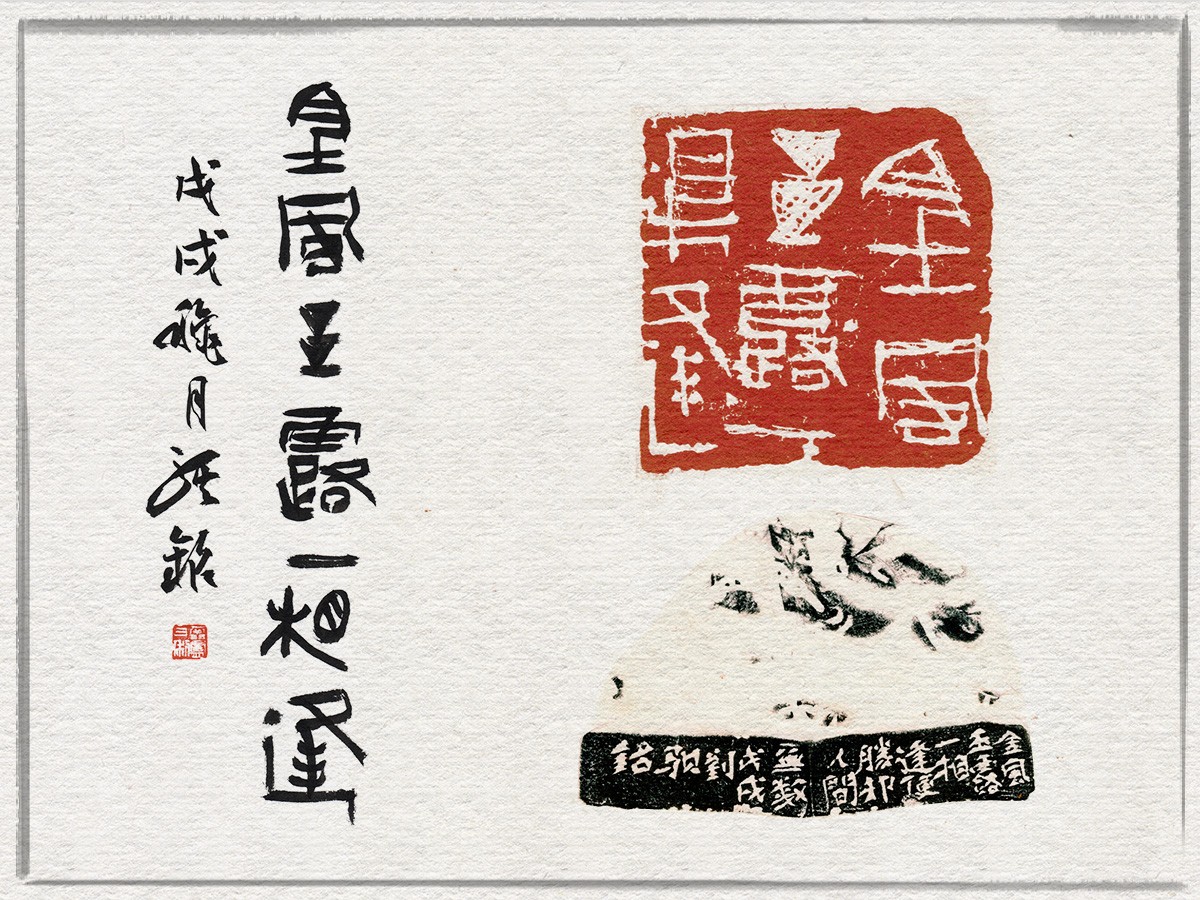 金風
玉露一
相逢
金風
玉露
一相
逢便
勝卻
人間
無數
戊戌
劉
銘
金風玉露一相逢
戊戌穐月銘